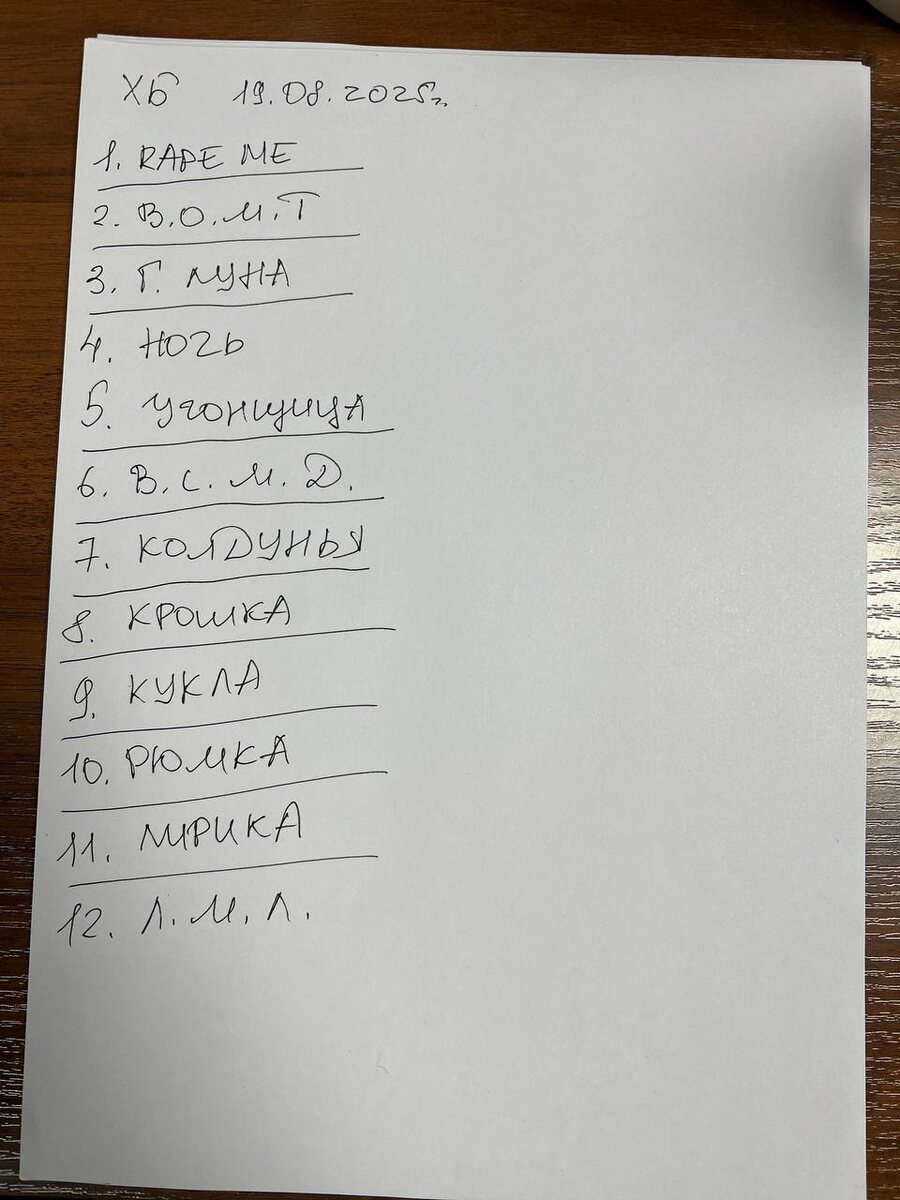 ХБ 19.08.2025г.
1. RAPE ME
2. В.О.М.Т
3. Г. ЛУНА
4. НОЧЬ
5. УГОНЩИЦА
6. В.С.М.Д.
7. КОЛДУНЬЯ
8. КРОШКА
9. КУКЛА
10. РЮМКА
11. ЛИРИКА
12. Л.М.Л.